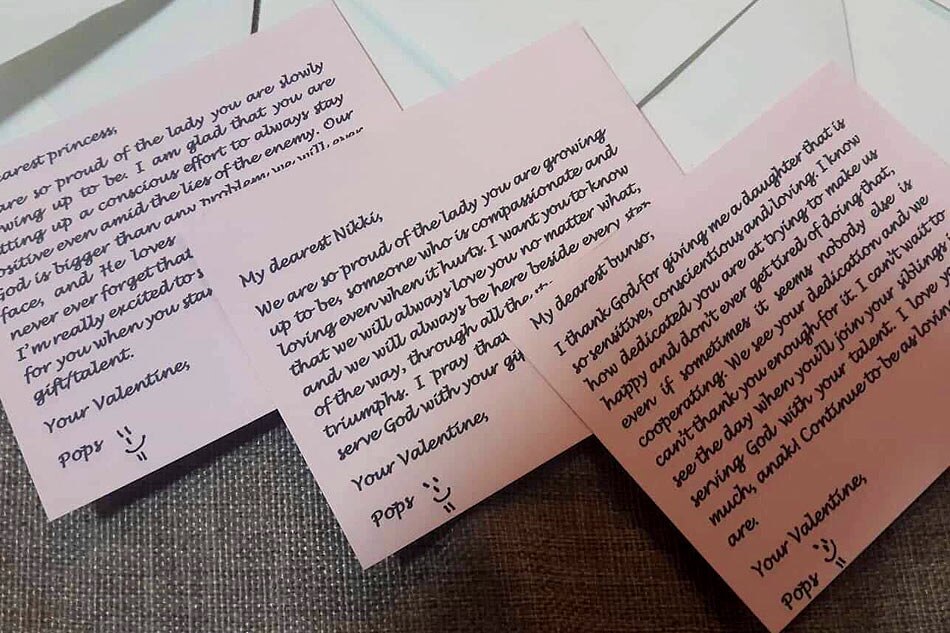 princess,
are so proud of the lady you are slowly
up to be. I am glad that you are
up a conscious effort to always stay
positive even amid the lies of the enemy. Our
God is bigger than any problem we will ever
face, and He loves
never ever forget that
I'm really excited to s
for you when you star
gift/talent.
Your Valentine,
Pops
My dearest Nikki,
We are so proud of the lady you are growing
up to be, someone who is compassionate and
loving even when it hurts. I want you to know
that we will always love you no matter what,
and we will always be here beside every step
of the way, through all the
triumphs. I pray that
serve God with your gif
Your Valentine,
Pops
My dearest bunso,
I thank God for giving me a daughter that is
so sensitive, conscientious and loving. I know
how dedicated you are at trying to make us
happy and don't ever get tired of doing that,
even if sometimes it seems nobody else is
cooperating. We see your dedication and we
can't thank you enough for it. I can't wait to
see the day when you'll join your siblings
serving God with your talent. I love
much, anak! Continue to be as loving
are.
Your Valentine,
Pops